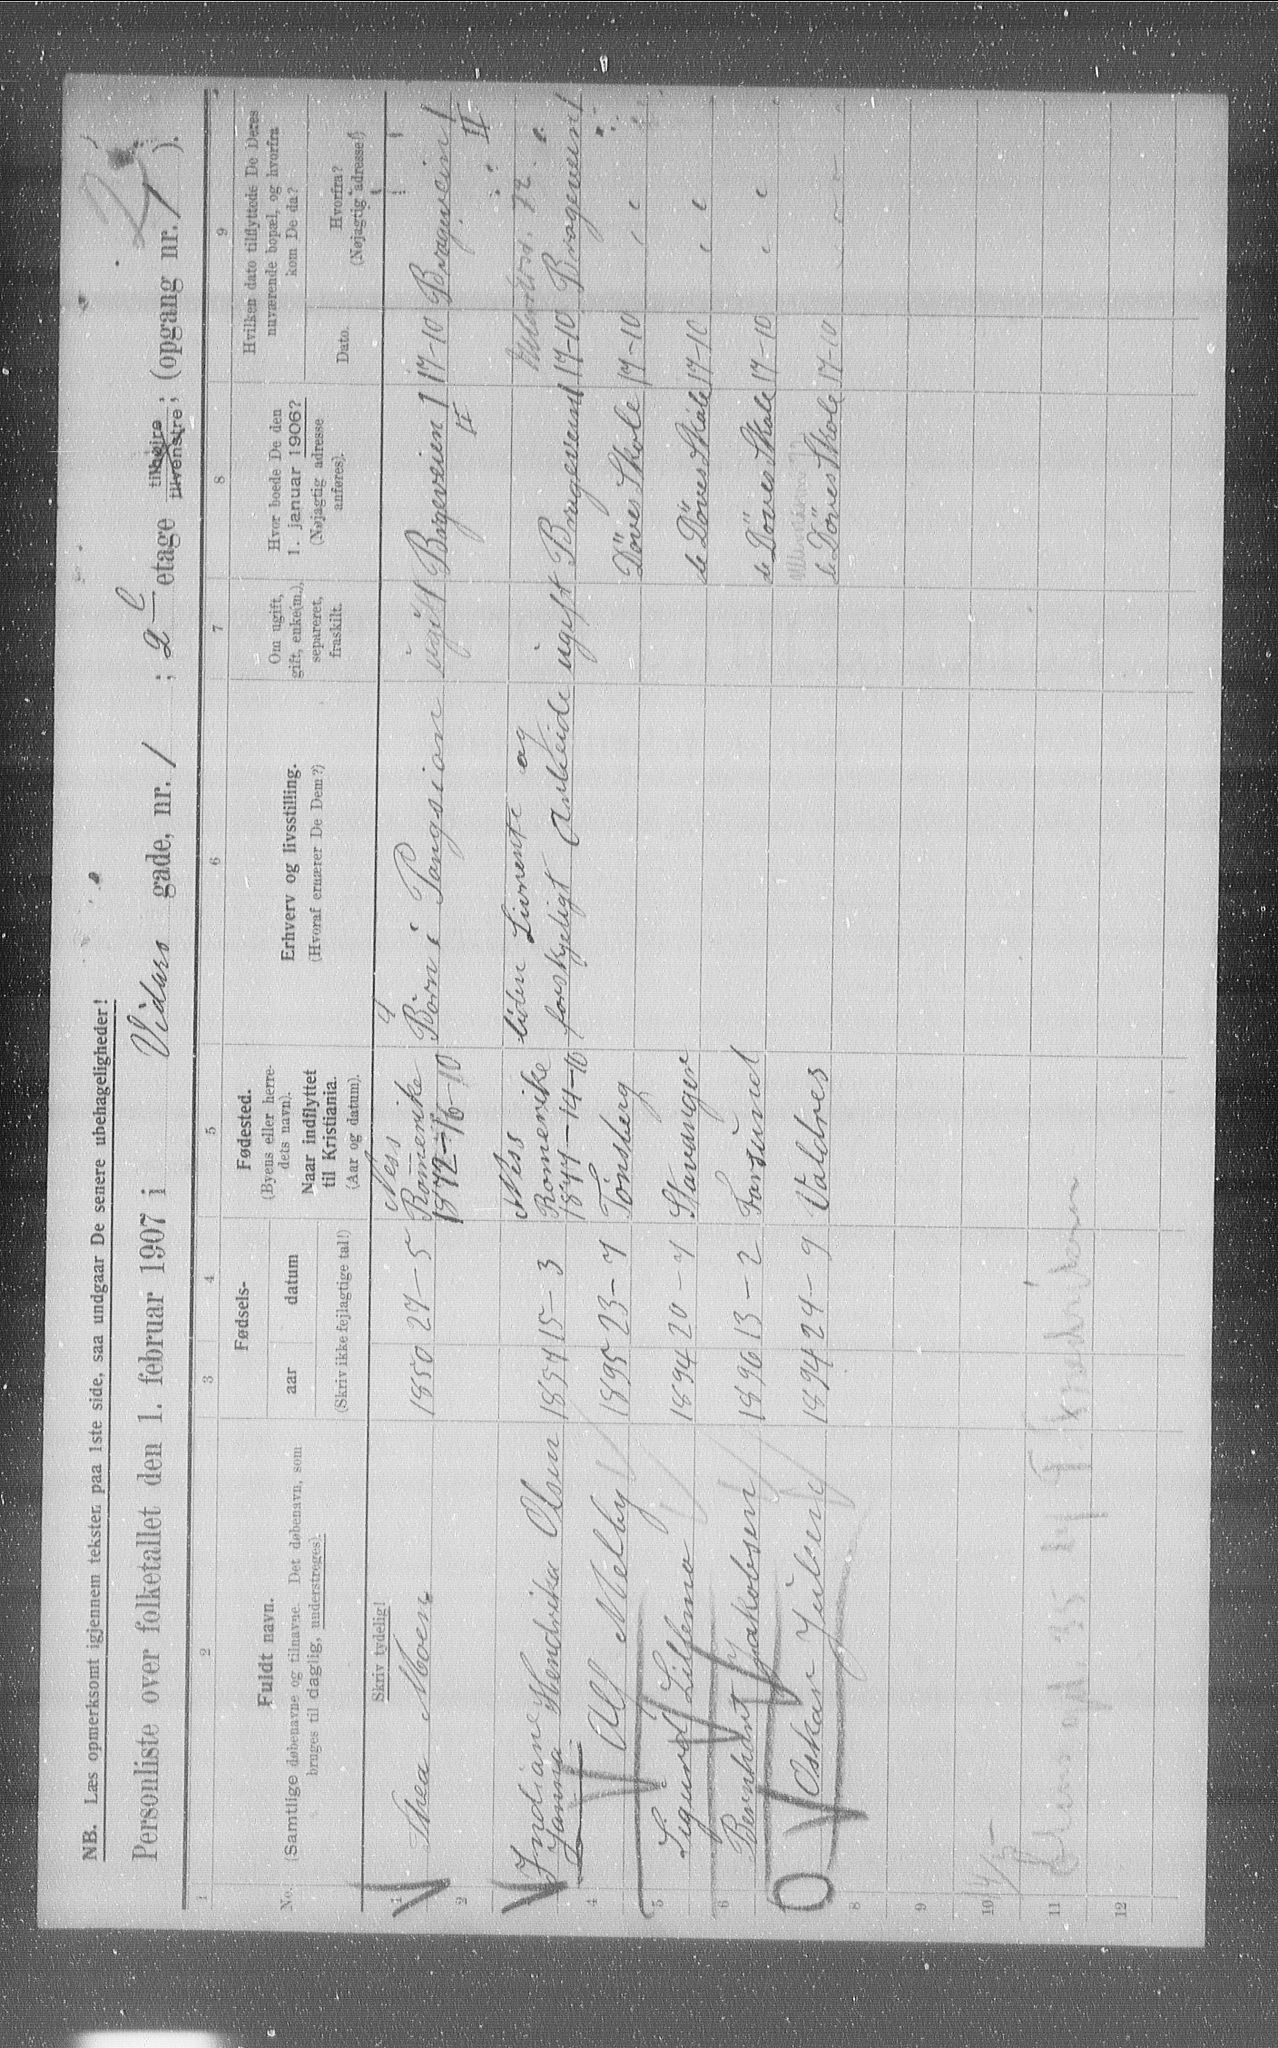 NB. Læs opmerksomt igjennem teksten paa 1ste side, saa undgaar De senere ubehageligheder!
Personliste over folketallet den 1. februar 1907 i Vidars gade, nr. 1 ; 2 etage tilhøire tilvenstre; (opgang nr. 1 ).
1 2 3 4 5 6 7 8 9
No.
Fuldt navn.
(Samtlige døbenavne og tilnavne. Det døbenavn, som
bruges til daglig, understreges).
Fødsels-
aar datum
(Skriv ikke fejlagtige tal!)
Fødested.
(Byens eller herre-
dets navn).
Naar indflyttet
til Kristiania.
(Aar og datum).
Erhverv og livsstilling.
(Hvoraf ernærer De Dem?)
Om ugift,
gift, enke(m.),
separeret,
fraskilt.
Hvor boede De den
1. januar 1906?
(Nøjagtig adresse
anføres).
Hvilken dato tilflyttede De Deres
nuværende bopæl, og hvorfra
kom De da?
Dato.
Hvorfra?
(Nøjagtig adresse!)
Skriv tydelig!
Ness 4
1 Thea Moen 1850 27-5 Romerike Børn i Pangsion ugift Brageveien 1 17-10 Bragevein 1
2 1872-16-10 II II
Indiane Hendrika Olsen 1857 15-3 Ness Romerike liden Livrente og
Janna 1877-14-10 forskjeligt Arbeide ugift Bragevein 1 17-10 Bragevein 1
4 Alf Melby 1895 23-7 Tønsberg Døves Skole 17-10 " "
5 Sigurd Lillemo 1894 20-7 Stavanger de Døves Skole 17-10 " "
6 Bernhart Jakobsen 1896 13-2 Farsund de Døves Skole 17-10 " "
Oskar Julsen 1894 24-9 Valdres de Døves Skole 17-10 " "
8
9
10 14/5
11
12